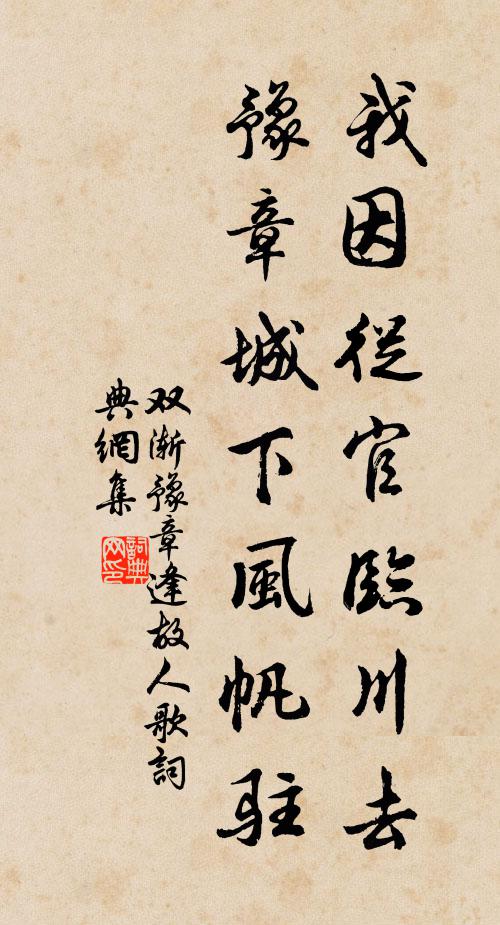 我因從官臨川去
豫章城下風帆駐
双渐豫章逢故人歌詞
典網集
詞典网印